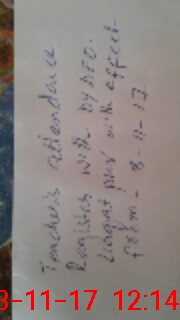 Teacher's attendance
Register with by DEO.
with effect
from - 8-11-17
8-11-17 12:14